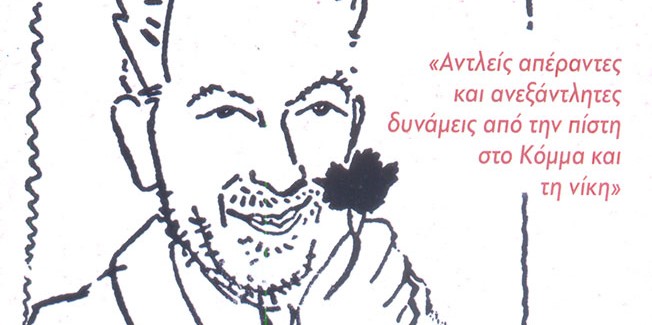 «Αντλείς απέραντες
και ανεξάντλητες
δυνάμεις από την πίστη
στο Κόμμα και
τη νίκη»